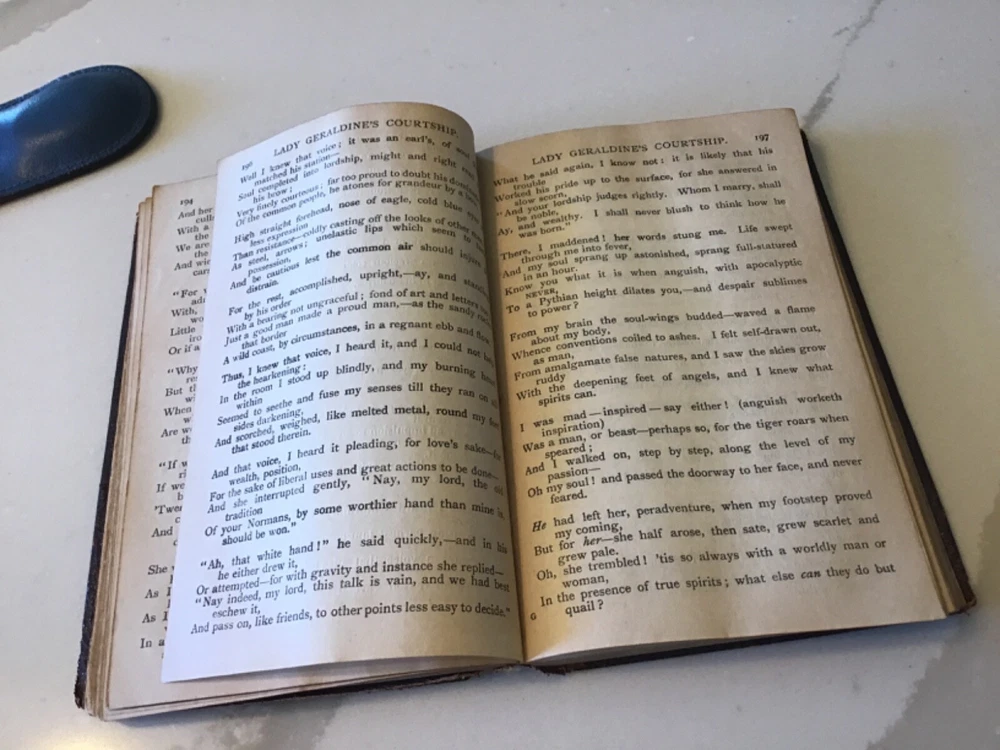 194
And her
With a
the
We are
the
And
"For
With,
Little
Or if a
"Why
But
When
Are
"If
If
'Twe
And
She
As
As
In a
196 LADY GERALDINE'S COURTSHIP.
Well I knew that voice; it was an earl's, of
matched his station—
Soul completed into lordship, might and right
his brow;
Very finely courteous; far too proud to doubt his
Of the common people, he atones for grandeur by a
High straight forehead, nose of eagle, cold blue
less expression
Than resistance—coldly casting off the looks of other
As steel, arrows; unelastic lips which seem to
possession,
And be cautious lest the common air should
distrain.
For the rest, accomplished, upright,—ay, and
by his order
With a bearing not ungraceful; fond of art and letters
Just a good man made a proud man,—as the sandy
that border
A wild coast, by circumstances, in a regnant ebb and
Thus, I knew that voice, I heard it, and I could not
the hearkening:
In the room I stood up blindly, and my burning
within
Seemed to seethe and fuse my senses till they ran on
sides darkening,
And scorched, weighed, like melted metal, round my
that stood therein.
And that voice, I heard it pleading, for love's sake—
wealth, position,
For the sake of liberal uses and great actions to be done—
And she interrupted gently, "Nay, my lord, the old
tradition
Of your Normans, by some worthier hand than mine is,
should be won."
"Ah, that white hand!" he said quickly,—and in his
he either drew it,
Or attempted—for with gravity and instance she replied—
"Nay indeed, my lord, this talk is vain, and we had best
eschew it,
And pass on, like friends, to other points less easy to decide."
LADY GERALDINE'S COURTSHIP. 197
What he said again, I know not: it is likely that his
trouble
Worked his pride up to the surface, for she answered in
slow scorn,
"And your lordship judges rightly. Whom I marry, shall
be noble,
Ay, and wealthy. I shall never blush to think how he
was born."
There, I maddened! her words stung me. Life swept
through me into fever,
And my soul sprang up astonished, sprang full-statured
in an hour.
Know you what it is when anguish, with apocalyptic
NEVER,
To a Pythian height dilates you,—and despair sublimes
to power?
From my brain the soul-wings budded—waved a flame
about my body,
Whence conventions coiled to ashes. I felt self-drawn out,
as man,
From amalgamate false natures, and I saw the skies grow
ruddy
With the deepening feet of angels, and I knew what
spirits can.
I was mad—inspired—say either! (anguish worketh
inspiration)
Was a man, or beast—perhaps so, for the tiger roars when
speared;
And I walked on, step by step, along the level of my
passion—
Oh my soul! and passed the doorway to her face, and never
feared.
He had left her, peradventure, when my footstep proved
my coming,
But for her—she half arose, then sate, grew scarlet and
grew pale.
Oh, she trembled! 'tis so always with a worldly man or
woman,
In the presence of true spirits; what else can they do but
quail?
G